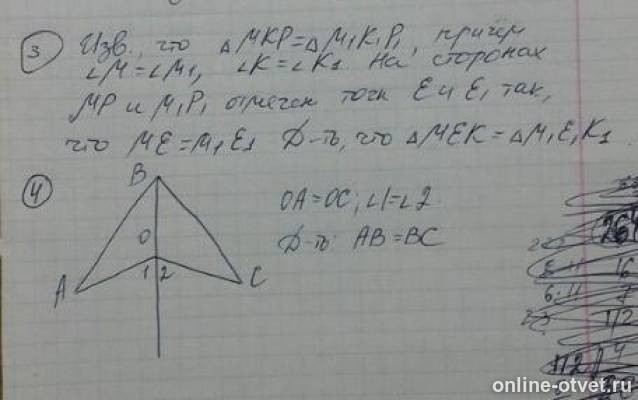 3 Изв., что △MKP=△M₁K₁P₁, причём
∠M=∠M₁, ∠K=∠K₁. На сторонах
MP и M₁P₁ отмечен точк E и E₁ так,
что ME=M₁E₁ Д-ть, что △MEK=△M₁E₁K₁
4
B
OA=OC; ∠1=∠2.
O
Д-ть: AB=BC
1 2
A
C
264
16
6:11
1/2
4
112
online-otvet.ru